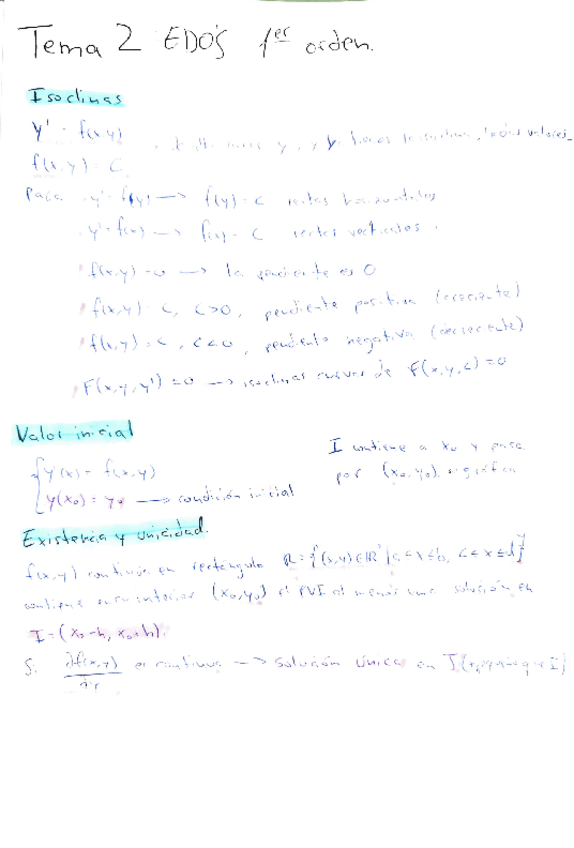 Tema 2 EDO'S 1er orden.
Isoclinas
y' = f(x,y)
f(x,y) = C
Para y' = f(y) → f(y) = C rectas horizontales
y' = f(x) → f(x) = C rectas verticales.
f(x,y) = 0 → la pendiente es 0
f(x,y) = C, C>0, pendiente positiva (creciente)
f(x,y) = C, C<0, pendiente negativa (decreciente)
F(x,y,y') = 0 → isoclinas curvas de F(x,y,c) = 0
Valor inicial
y'(x) = f(x,y)
y(x₀) = y₀ → condición inicial
I contiene a x₀ y pasa
por (x₀,y₀) gráfica
Existencia y unicidad.
f(x,y) continua en rectángulo R = {(x,y)∈ℝ² | a≤x≤b, c≤x≤d}
contiene en su interior (x₀,y₀) el PVI al menos una solución en
I = (x₀-h, x₀+h).
Si ∂f(x,y)/∂y es continua → solución única en I